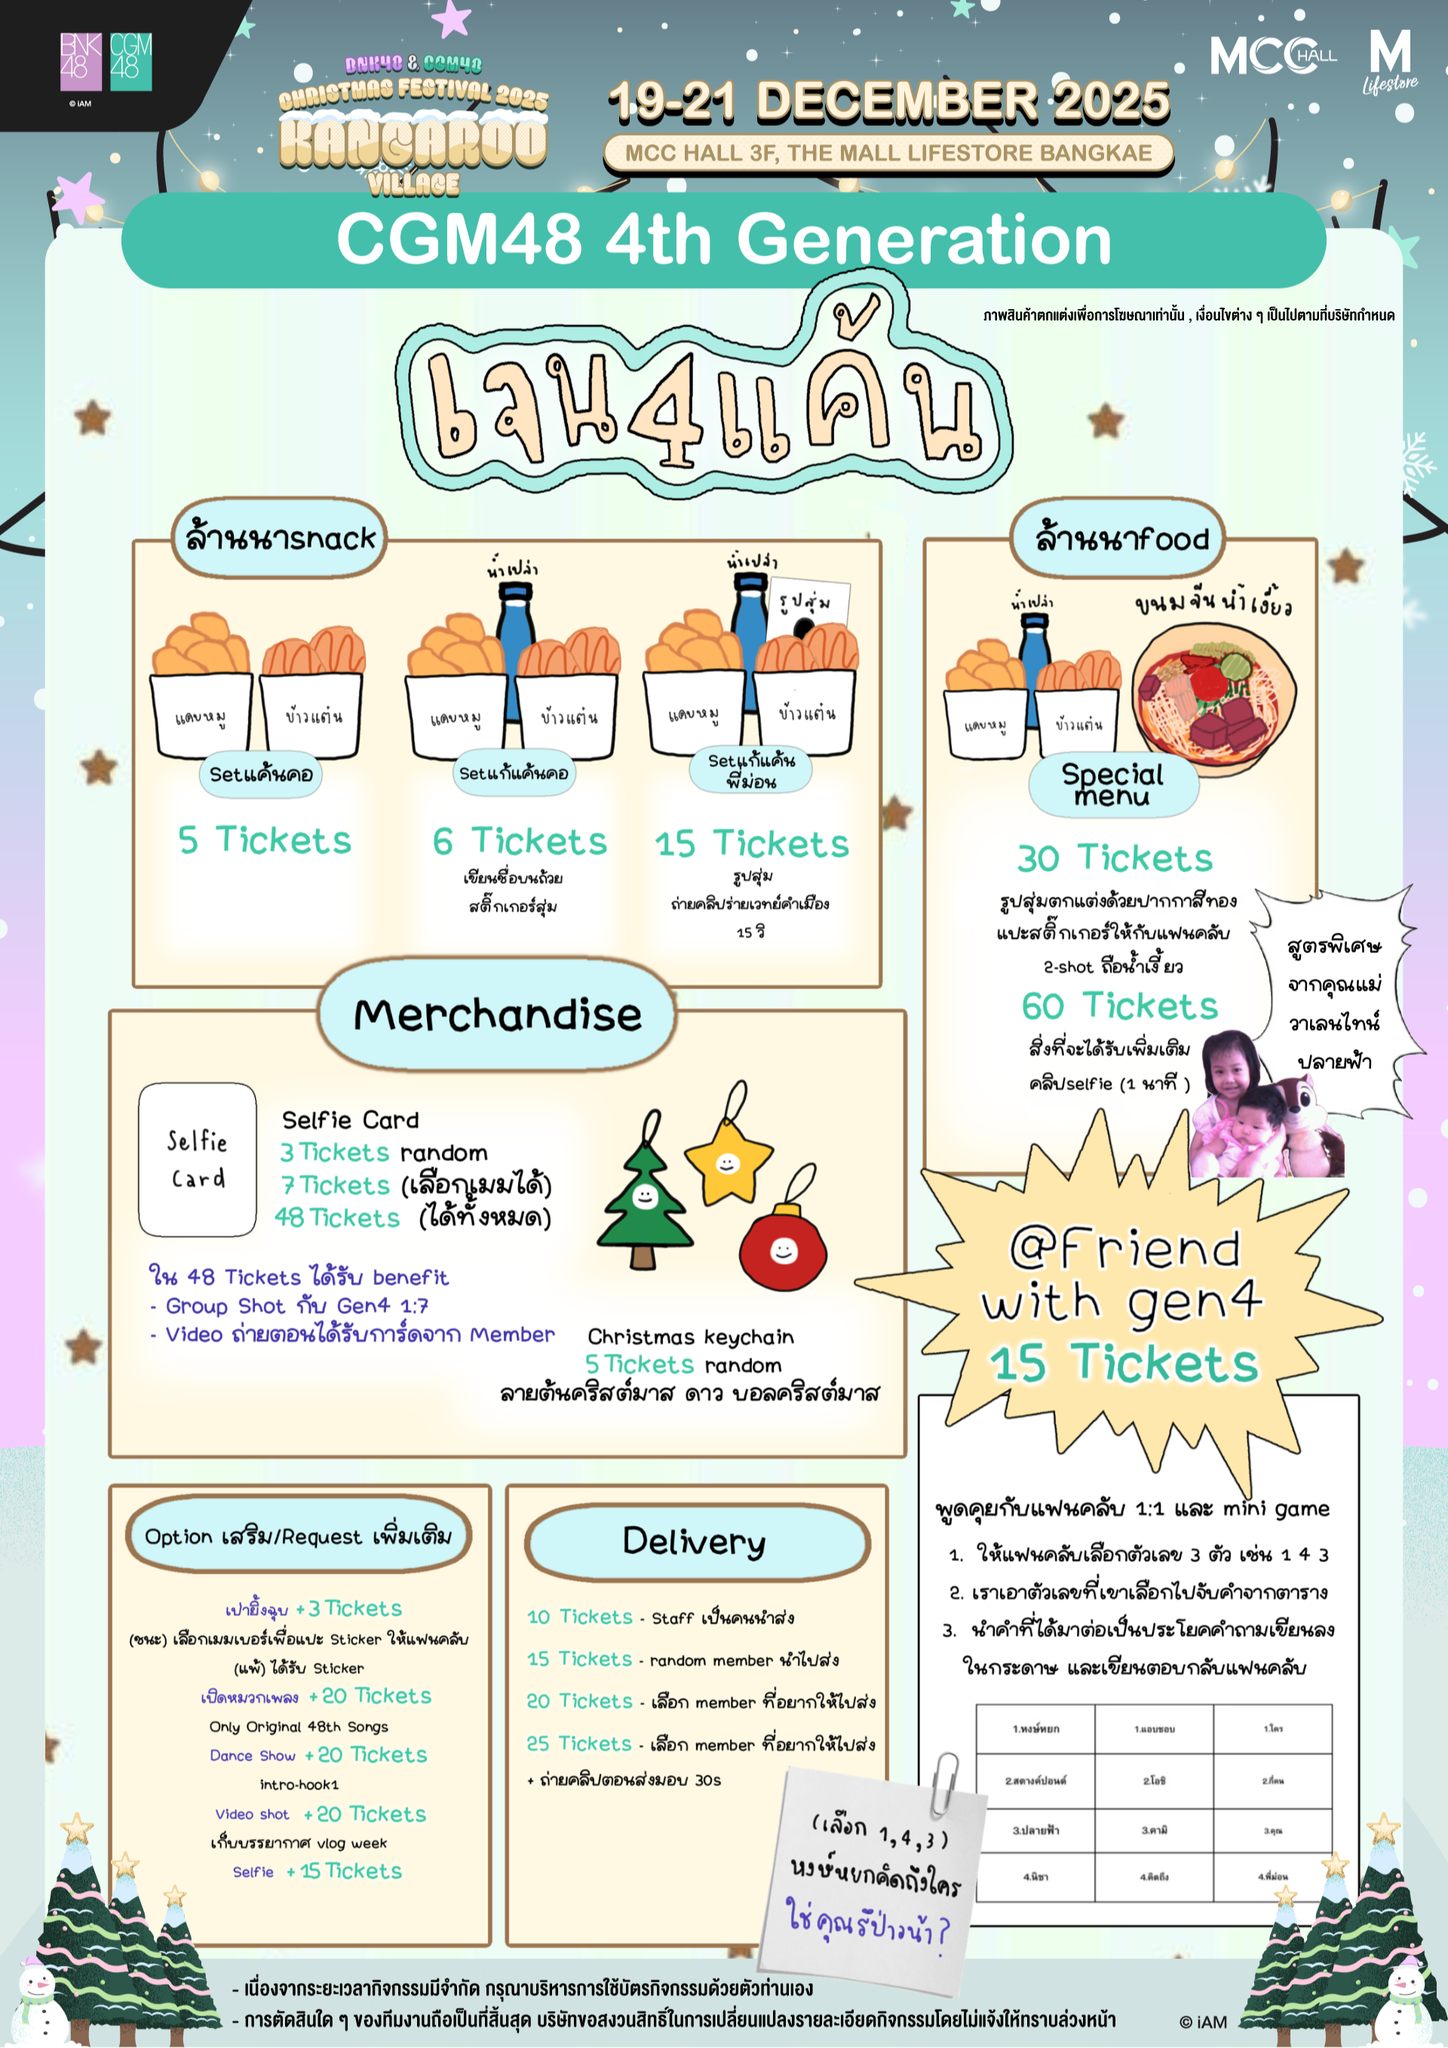 BNK48
CGM48
© iAM
BNK48 & CGM48
CHRISTMAS FESTIVAL 2025
KANGAROO
VILLAGE
19-21 DECEMBER 2025
MCC HALL 3F, THE MALL LIFESTORE BANGKAE
MCC HALL
M Lifestore
CGM48 4th Generation
ภาพสินค้าตกแต่งเพื่อการโฆษณาเท่านั้น , เงื่อนไขต่าง ๆ เป็นไปตามที่บริษัทกำหนด
เจน4แค้น
ล้านนาsnack
แคบหมู
ข้าวแต๋น
Setแค้นคอ
5 Tickets
น้ำเปล่า
แคบหมู
ข้าวแต๋น
Setแก้แค้นคอ
6 Tickets
เขียนชื่อบนถ้วย
สติ๊กเกอร์สุ่ม
น้ำเปล่า
รูปสุ่ม
แคบหมู
ข้าวแต๋น
Setแก้แค้น
พี่ม่อน
15 Tickets
รูปสุ่ม
ถ่ายคลิปร่ายเวทย์คำเมือง
15 วิ
ล้านนาfood
น้ำเปล่า
ขนมจีนน้ำเงี้ยว
แคบหมู
ข้าวแต๋น
Special
menu
30 Tickets
รูปสุ่มตกแต่งด้วยปากกาสีทอง
แปะสติ๊กเกอร์ให้กับแฟนคลับ
2-shot ถือน้ำเงี้ยว
60 Tickets
สิ่งที่จะได้รับเพิ่มเติม
คลิปselfie (1 นาที )
สูตรพิเศษ
จากคุณแม่
วาเลนไทน์
ปลายฟ้า
Merchandise
Selfie
Card
Selfie Card
3 Tickets random
7 Tickets (เลือกเมมได้)
48 Tickets (ได้ทั้งหมด)
ใน 48 Tickets ได้รับ benefit
- Group Shot กับ Gen4 1:7
- Video ถ่ายตอนได้รับการ์ดจาก Member
Christmas keychain
5 Tickets random
ลายต้นคริสต์มาส ดาว บอลคริสต์มาส
@Friend
with gen4
15 Tickets
พูดคุยกับแฟนคลับ 1:1 และ mini game
1. ให้แฟนคลับเลือกตัวเลข 3 ตัว เช่น 1 4 3
2. เราเอาตัวเลขที่เขาเลือกไปจับคำจากตาราง
3. นำคำที่ได้มาต่อเป็นประโยคคำถามเขียนลง
ในกระดาษ และเขียนตอบกลับแฟนคลับ
1.หงษ์หยก 1.แอบชอบ 1.ใคร
2.สตางค์ปอนด์ 2.โอชิ 2.กี่คน
3.ปลายฟ้า 3.คามิ 3.คุณ
4.นิชา 4.คิดถึง 4.พี่ม่อน
Option เสริม/Request เพิ่มเติม
เป่ายิ้งฉุบ +3 Tickets
(ชนะ) เลือกเมมเบอร์เพื่อแปะ Sticker ให้แฟนคลับ
(แพ้) ได้รับ Sticker
เปิดหมวกเพลง +20 Tickets
Only Original 48th Songs
Dance Show +20 Tickets
intro-hook1
Video shot +20 Tickets
เก็บบรรยากาศ vlog week
Selfie +15 Tickets
Delivery
10 Tickets - Staff เป็นคนนำส่ง
15 Tickets - random member นำไปส่ง
20 Tickets - เลือก member ที่อยากให้ไปส่ง
25 Tickets - เลือก member ที่อยากให้ไปส่ง
+ ถ่ายคลิปตอนส่งมอบ 30s
(เลือก 1,4,3)
หงษ์หยกคิดถึงใคร
ใช่คุณรึป่าวน้า?
- เนื่องจากระยะเวลากิจกรรมมีจำกัด กรุณาบริหารการใช้บัตรกิจกรรมด้วยตัวท่านเอง
- การตัดสินใด ๆ ของทีมงานถือเป็นที่สิ้นสุด บริษัทขอสงวนสิทธิ์ในการเปลี่ยนแปลงรายละเอียดกิจกรรมโดยไม่แจ้งให้ทราบล่วงหน้า
© iAM